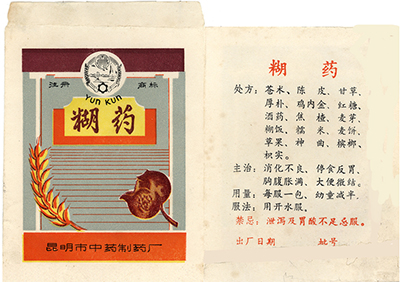 注册 商标
YUN KUN
糊药
昆明市中药制药厂
糊 药
处方：苍术、陈 皮、甘草、
厚朴、鸡内金、红糖、
酒药、焦 楂、麦芽、
糊饭、糯 米、麦饼、
草果、神 曲、槟榔、
枳实。
主治：消化不良、停食反胃、
胸腹胀满、大便微结。
用量：每服一包、幼童减半。
服法：用开水服。
禁忌：泄泻及胃酸不足忌服。
出厂日期 批号